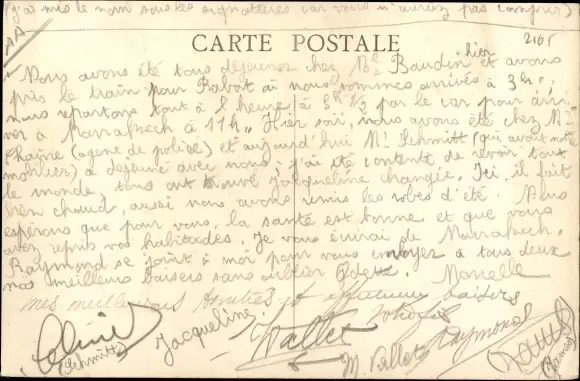 (j'ai mis le nom sous les signatures car vous n'auriez pas compris)
AA
CARTE POSTALE
2165
hier
Nous avons été tous déjeuner chez Me Baudin et avons
pris le train pour Rabat où nous sommes arrivés à 3h,
nous repartons tout à l'heure à 5h 1/2 par le car pour arri-
ver à Marrakech à 11h. Hier soir, nous avons été chez Mr
Chaîne (agent de police) et aujourd'hui Mr Schmitt (qui avait notre
mobilier) a déjeuné avec nous; j'ai été contente de revoir tout
le monde, tous ont trouvé Jacqueline changée. Ici, il fait
bien chaud, aussi nous avons remis les robes d'été. Nous
espérons que pour vous, la santé est bonne et que vous
avez repris vos habitudes. Je vous écrirai de Marrakech.
Raymond se joint à moi pour vous envoyer à tous deux
nos meilleurs baisers sans oublier Marcelle
mes meilleures amitiés et affectueux baisers
Jacqueline
Raymond
(Schmitt)
M. Vallot